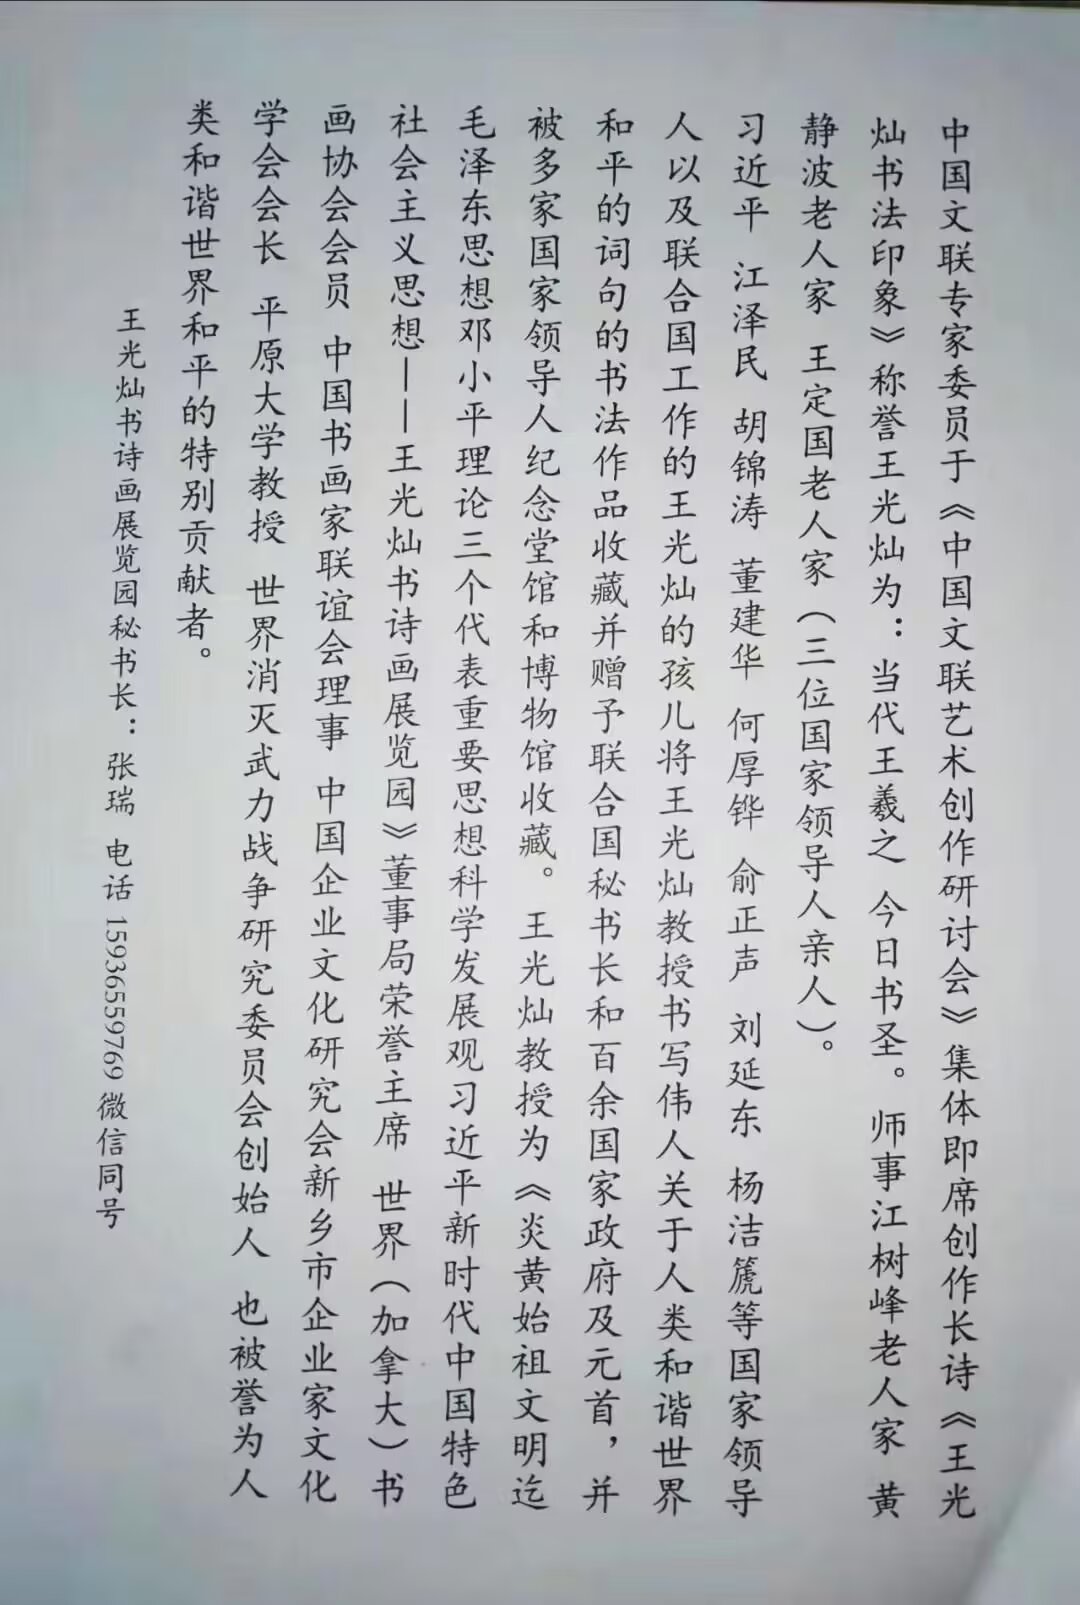 中国文联专家委员于《中国文联艺术创作研讨会》集体即席创作长诗《王光
灿书法印象》称誉王光灿为：当代王羲之 今日书圣。师事江树峰老人家 黄
静波老人家 王定国老人家（三位国家领导人亲人）。
习近平 江泽民 胡锦涛 董建华 何厚铧 俞正声 刘延东 杨洁篪等国家领导
人以及联合国工作的王光灿的孩儿将王光灿教授书写伟人关于人类和谐世界
和平的词句的书法作品收藏并赠予联合国秘书长和百余国家政府及元首，并
被多家国家领导人纪念堂馆和博物馆收藏。 王光灿教授为《炎黄始祖文明迄
毛泽东思想邓小平理论三个代表重要思想科学发展观习近平新时代中国特色
社会主义思想——王光灿书诗画展览园》董事局荣誉主席 世界（加拿大）书
画协会会员 中国书画家联谊会理事 中国企业文化研究会新乡市企业家文化
学会会长 平原大学教授 世界消灭武力战争研究委员会创始人 也被誉为人
类和谐世界和平的特别贡献者。
王光灿书诗画展览园秘书长：张瑞 电话 15936559769 微信同号